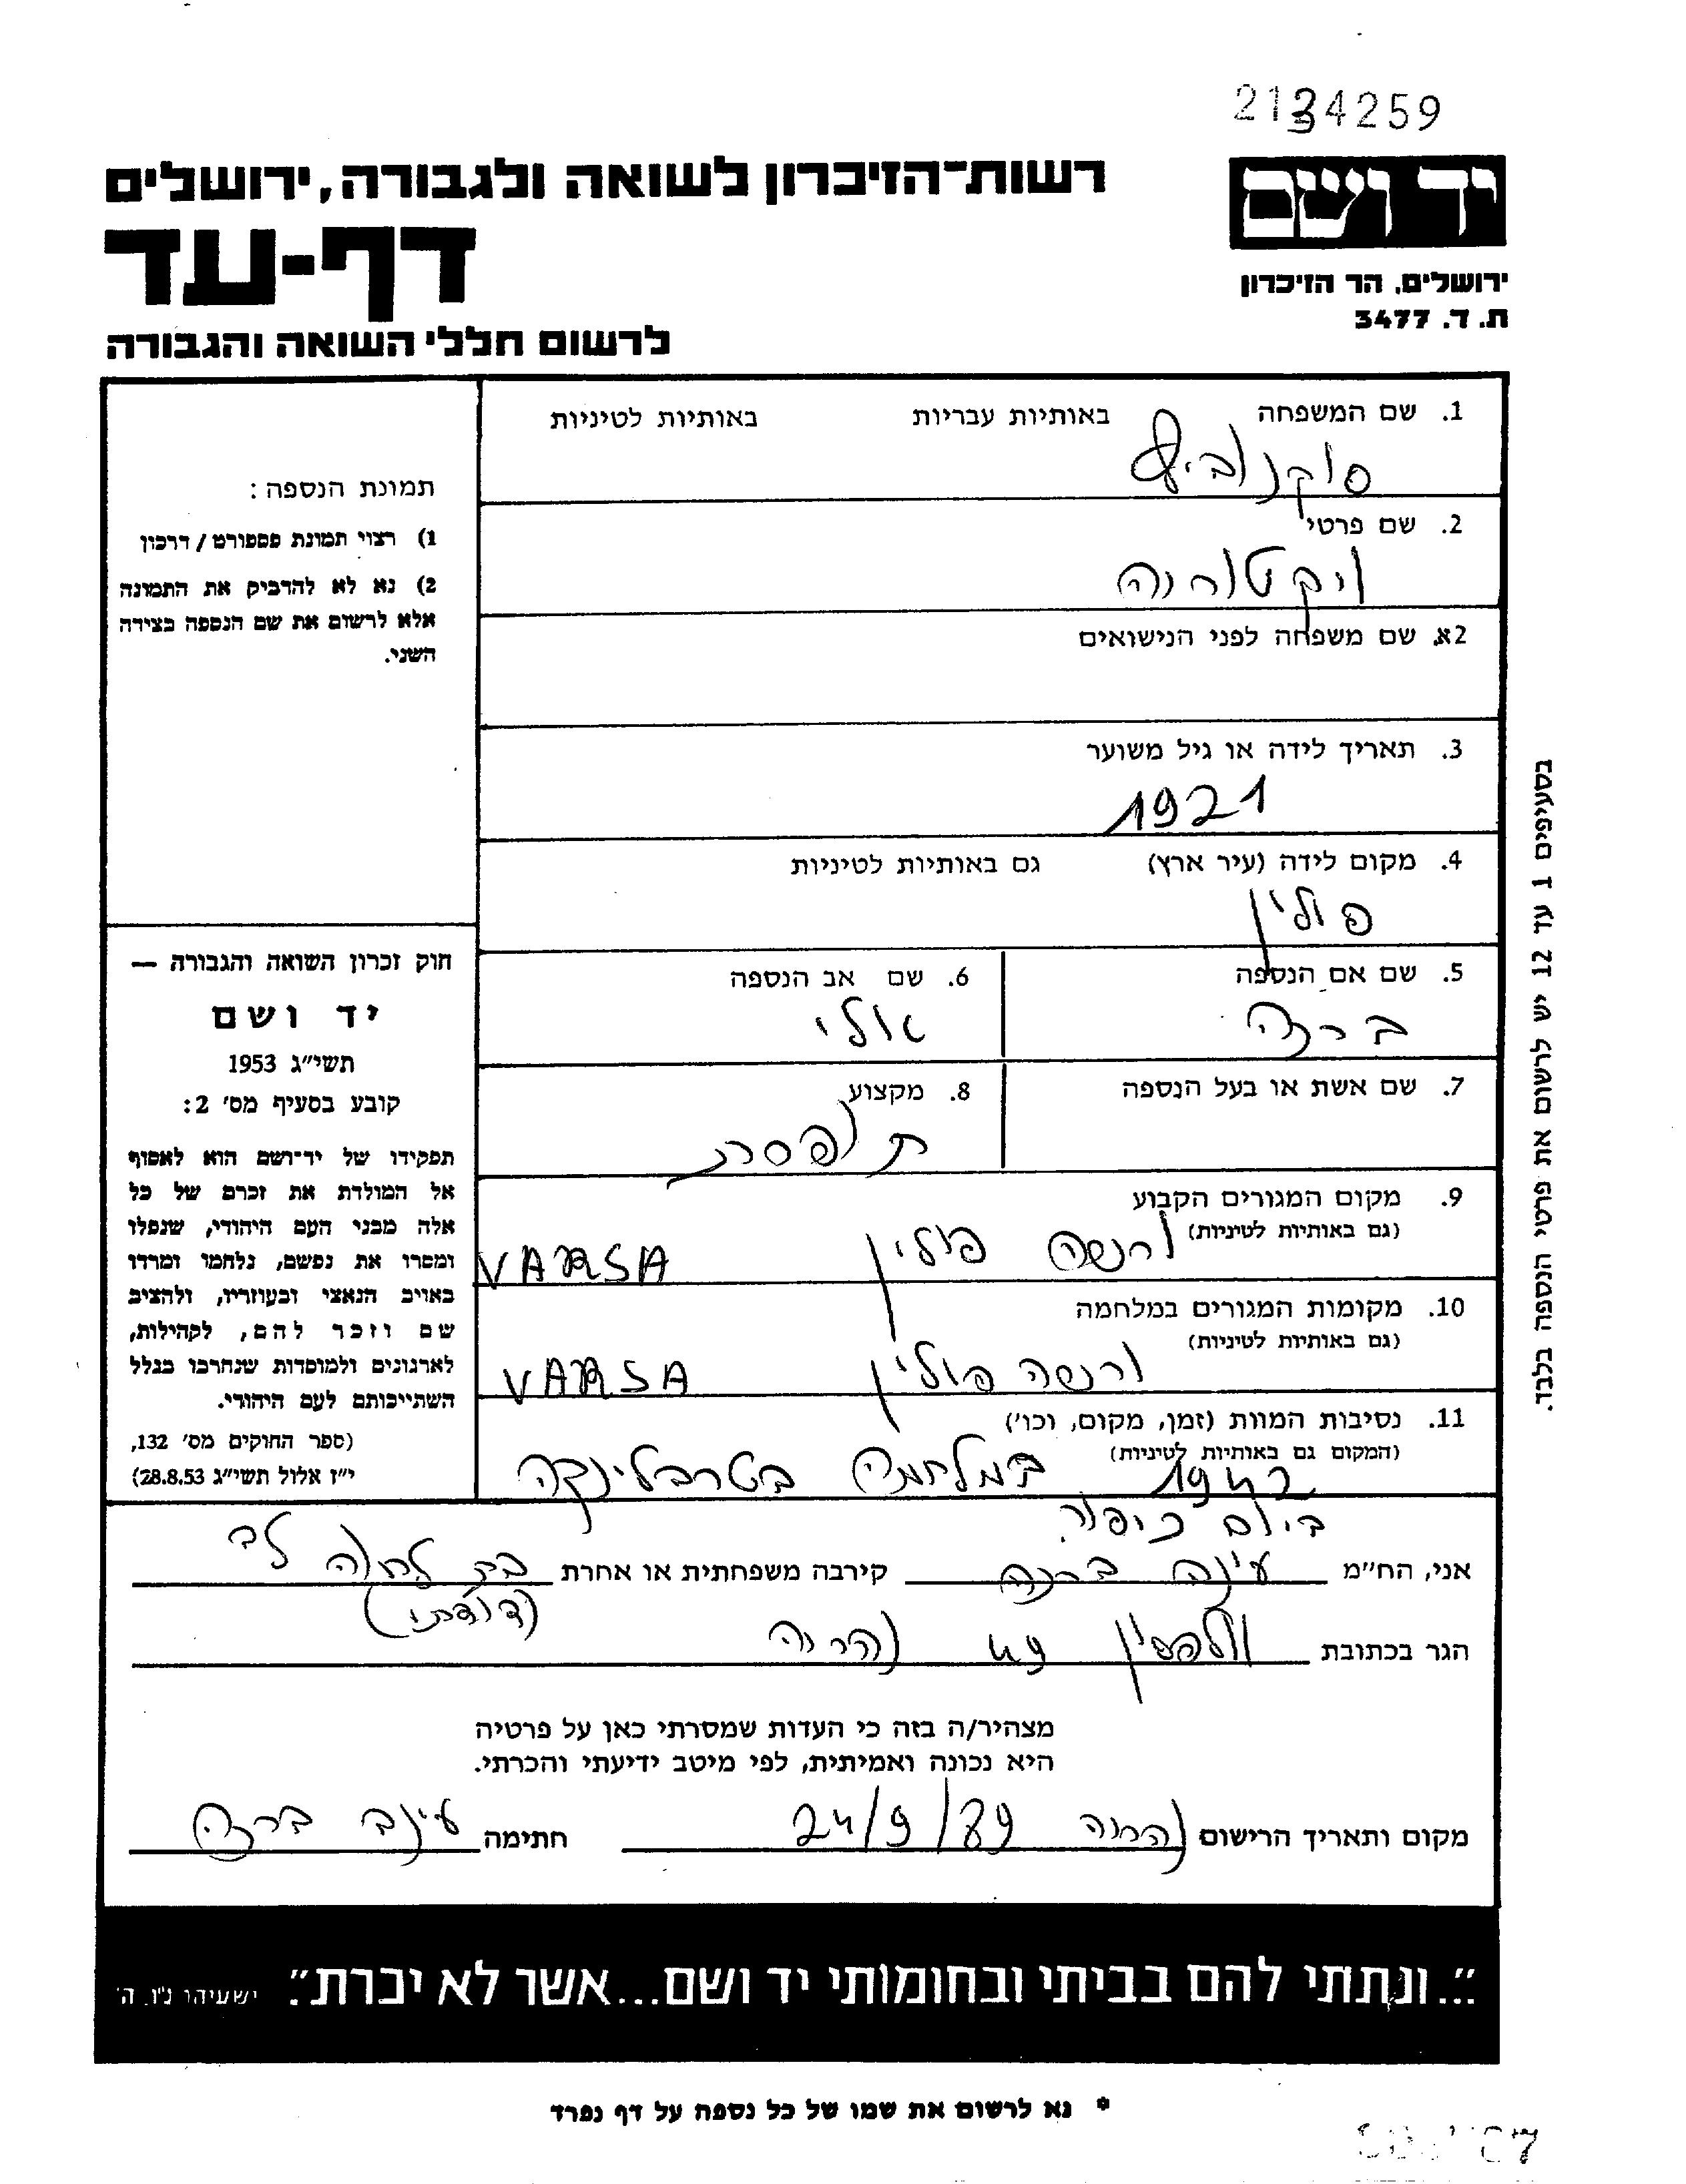 2134259
יד ושם
ירושלים, הר הזיכרון
ת. ד. 3477
רשות-הזיכרון לשואה ולגבורה, ירושלים
דף-עד
לרשום חללי השואה והגבורה
1. שם המשפחה באותיות עבריות באותיות לטיניות
2. שם פרטי
ויקטוריה
2א. שם משפחה לפני הנישואים
3. תאריך לידה או גיל משוער
1921
4. מקום לידה (עיר ארץ) גם באותיות לטיניות
פולין
5. שם אם הנספה
6. שם אב הנספה
7. שם אשת או בעל הנספה
8. מקצוע
תופסרת
9. מקום המגורים הקבוע
(גם באותיות לטיניות)
ורשה פולין VARSA
10. מקומות המגורים במלחמה
(גם באותיות לטיניות)
ורשה פולין VARSA
11. נסיבות המוות (זמן, מקום, וכו')
(המקום גם באותיות לטיניות)
1942 במלחמה בטרבלינקה
ביום כיפור
תמונת הנספה:
1) רצוי תמונת פספורט / דרכון
2) נא לא להדביק את התמונה
אלא לרשום את שם הנספה בצידה
השני.
חוק זכרון השואה והגבורה —
יד ושם
תשי״ג 1953
קובע בסעיף מס' 2:
תפקידו של יד-ושם הוא לאסוף
אל המולדת את זכרם של כל
אלה מבני העם היהודי, שנפלו
ומסרו את נפשם, נלחמו ומרדו
באויב הנאצי ובעוזריו, ולהציב
שם וזכר להם, לקהילות,
לארגונים ולמוסדות שנחרבו בגלל
השתייכותם לעם היהודי.
(ספר החוקים מס' 132,
י״ז אלול תשי״ג 28.8.53)
בסעיפים 1 עד 12 יש לרשום את פרטי הנספה בלבד.
אני, הח״מ קירבה משפחתית או אחרת
(דודתי)
הגר בכתובת וולפסון 49 נהריה
מצהיר/ה בזה כי העדות שמסרתי כאן על פרטיה
היא נכונה ואמיתית, לפי מיטב ידיעתי והכרתי.
מקום ותאריך הרישום נהריה 24/9/89 חתימה
״...ונתתי להם בביתי ובחומותי יד ושם...אשר לא יכרת״. ישעיהו נ״ו, ה'
* נא לרשום את שמו של כל נספה על דף נפרד